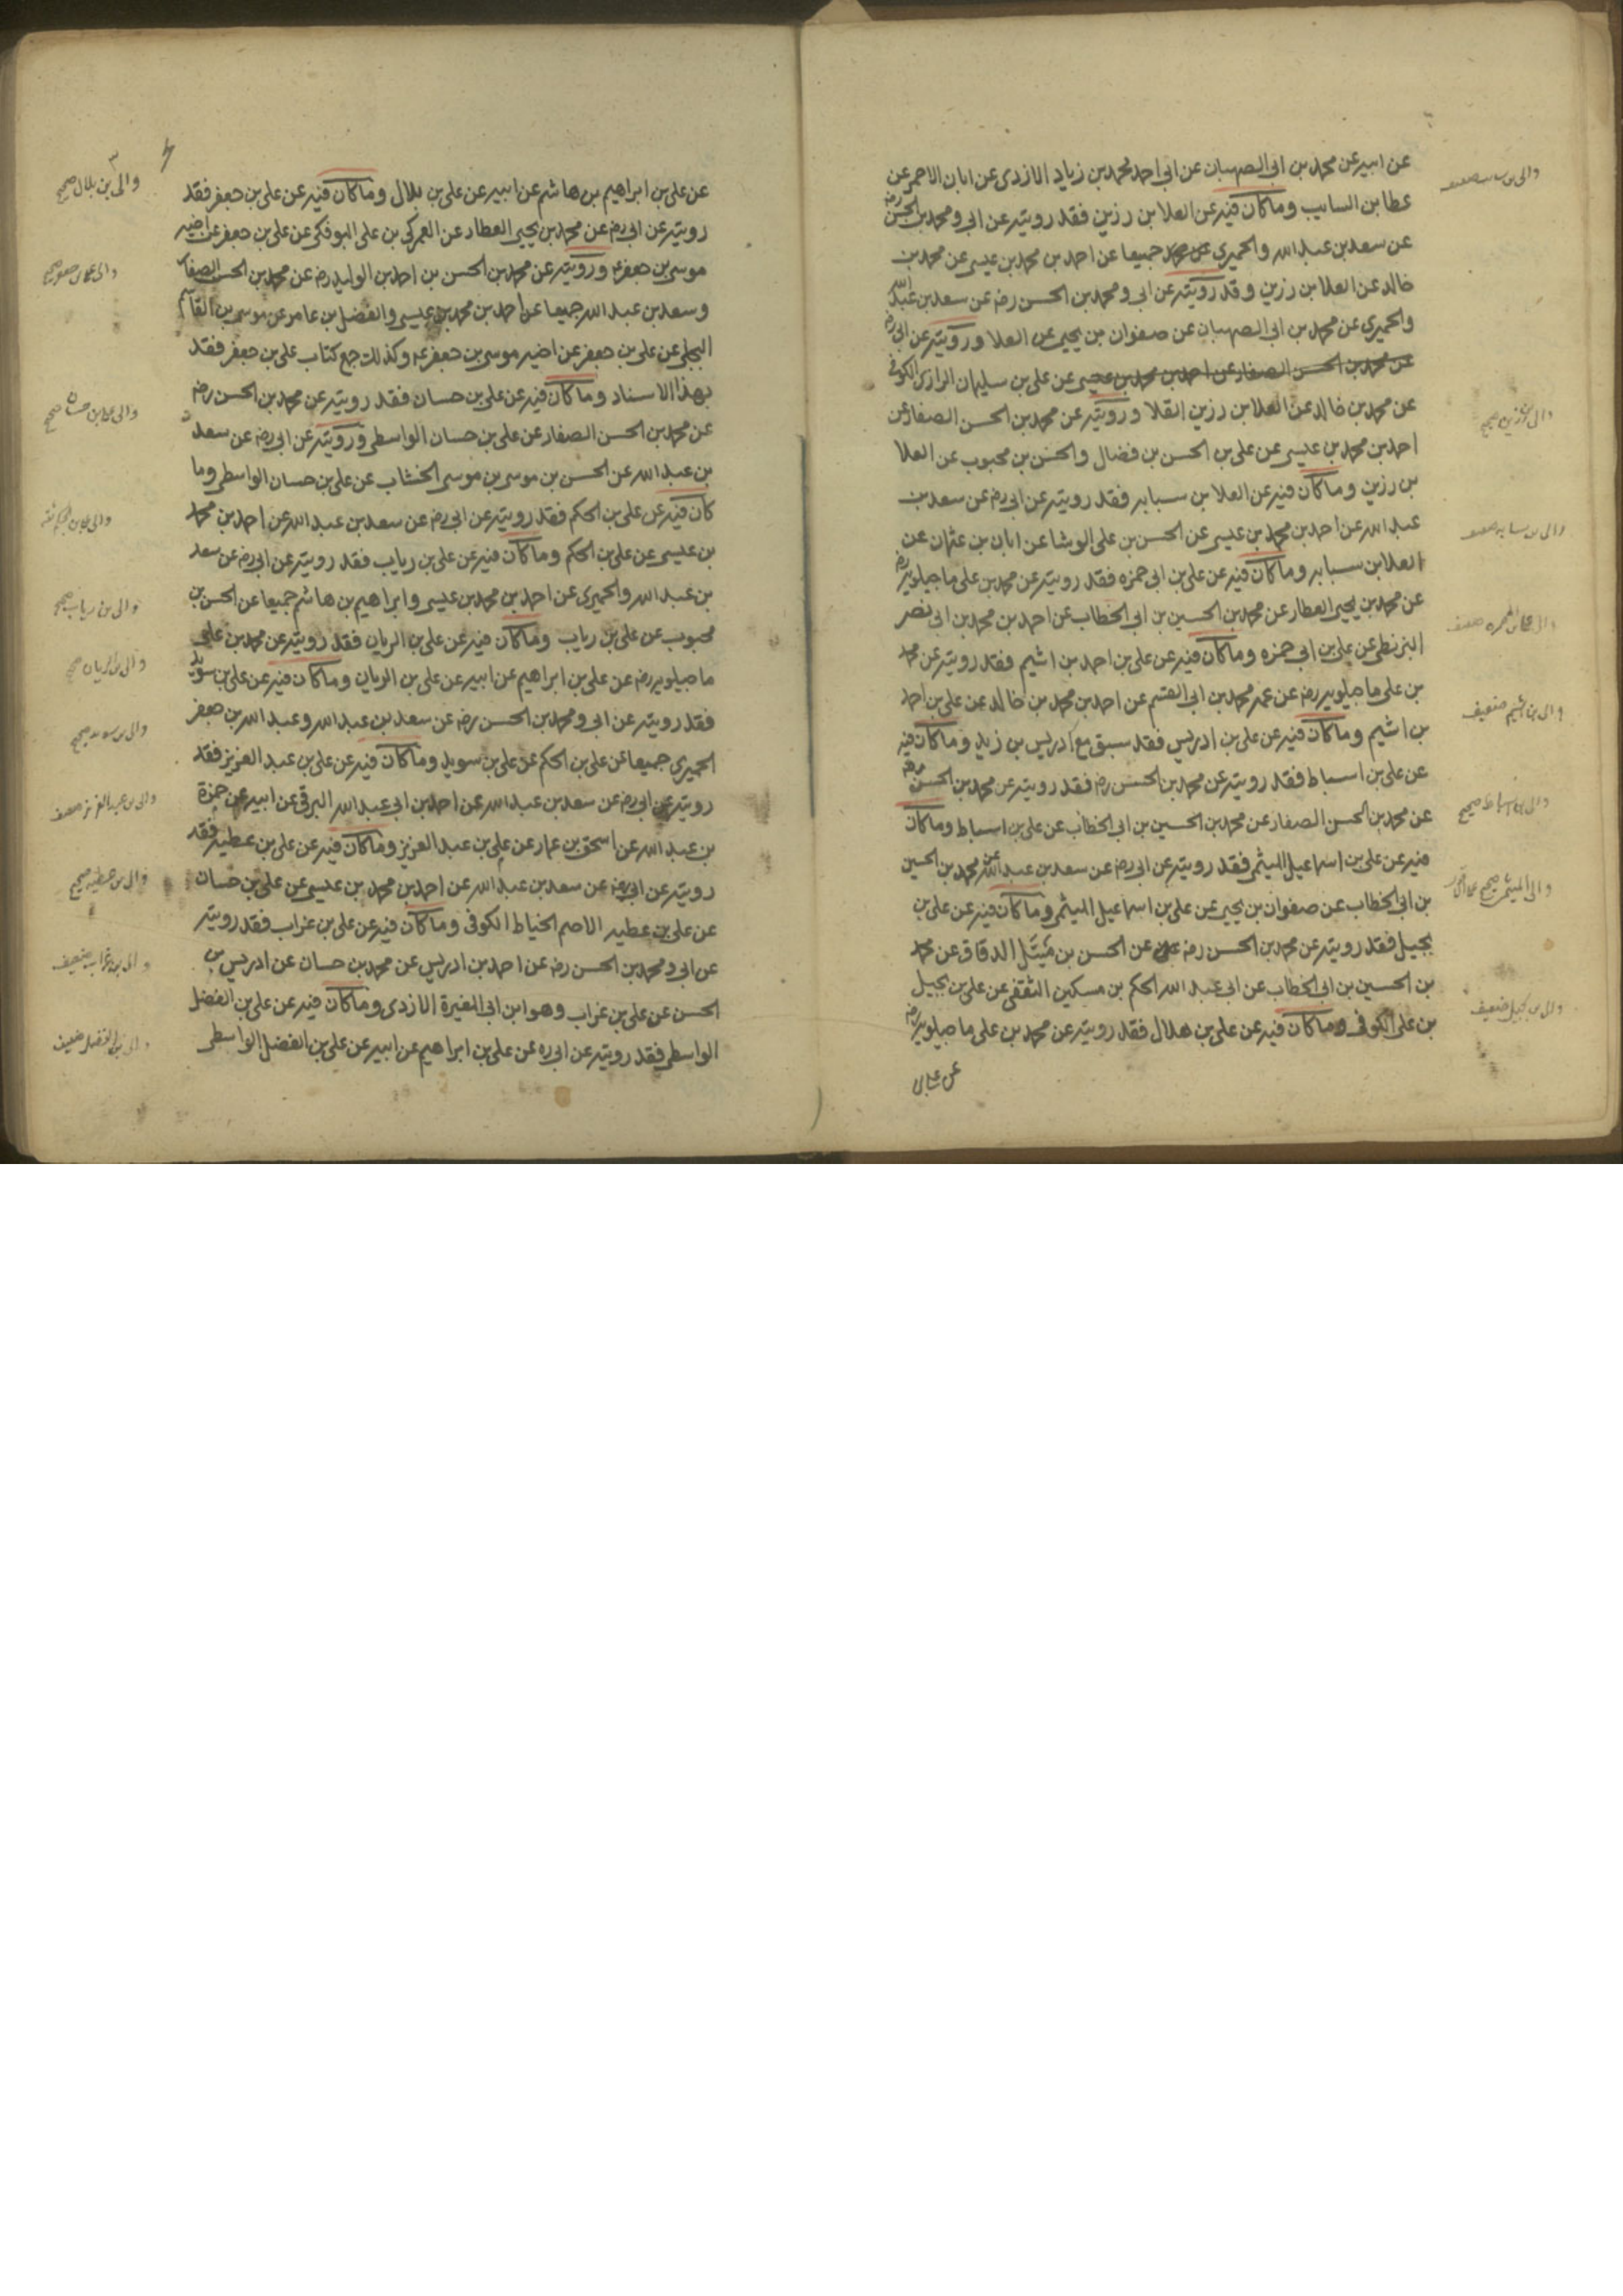 عن ابيه عن محمد بن ابي الصهبان عن ابي احمد محمد بن زياد الازدى عن ابان الاحمر عن
عطا بن السايب وما كان فيه عن العلا بن رزين فقد رويته عن ابي و محمد بن الحسن رضه
عن سعد بن عبد الله والحميري جميعا عن احمد بن محمد بن عيسى عن محمد بن
خالد عن العلا بن رزين وقد رويته عن ابي و محمد بن الحسن رضه عن سعد بن عبد الله
والحميري عن محمد بن ابي الصهبان عن صفوان بن يحيى عن العلا ورويته عن ابي رضه
عن محمد بن الحسن الصفار عن احمد بن محمد بن عيسى عن علي بن سليمان الرازى الكوفي
عن محمد بن خالد عن العلا بن رزين القلا ورويته عن محمد بن الحسن الصفار عن
احمد بن محمد بن عيسى عن علي بن الحسن بن فضال والحسن بن محبوب عن العلا
بن رزين وما كان فيه عن العلا بن سبابه فقد رويته عن ابي رضه عن سعد بن
عبد الله عن احمد بن محمد بن عيسى عن الحسن بن علي الوشا عن ابان بن عثمان عن
العلا بن سبابه وما كان فيه عن علي بن ابي حمزه فقد رويته عن محمد بن علي ماجيلويه رضه
عن محمد بن يحيى العطار عن محمد بن الحسين بن ابي الخطاب عن احمد بن محمد بن ابي نصر
البزنطى عن علي بن ابي حمزه وما كان فيه عن علي بن احمد بن اشيم فقد رويته عن محمد
بن علي ماجيلويه رضه عن عمه محمد بن ابي القسم عن احمد بن محمد بن خالد عن علي بن احمد
بن اشيم وما كان فيه عن علي بن ادريس فقد سبق مع ادريس بن زيد وما كان فيه
عن علي بن اسباط فقد رويته عن محمد بن الحسن رضه فقد رويته عن محمد بن الحسن رضه
عن محمد بن الحسن الصفار عن محمد بن الحسين بن ابي الخطاب عن علي بن اسباط وما كان
فيه عن علي بن اسماعيل الميثمى فقد رويته عن ابي رضه عن سعد بن عبد الله عن محمد بن الحسين
بن ابي الخطاب عن صفوان بن يحيى عن علي بن اسماعيل الميثمى وما كان فيه عن علي بن
بجيل فقد رويته عن محمد بن الحسن رضه عن الحسن بن مَتيَّل الدقاق عن محمد
بن الحسين بن ابي الخطاب عن ابي عبد الله الحكم بن مسكين الثقفى عن علي بن بجيل
بن علي الكوفى وما كان فيه عن علي بن هلال فقد رويته عن محمد بن علي ماجيلويه رضه
عن علي
والى بن رزين صحيح
والى بن اشيم ضعيف
والى بن اسباط صحيح
والى بن بجيل ضعيف
عن علي بن ابراهيم بن هاشم عن ابيه عن علي بن بلال وما كان فيه عن علي بن جعفر فقد
رويته عن ابي رضه عن محمد بن يحيى العطار عن العمركى بن علي البوفكى عن علي بن جعفر عن اخيه
موسى بن جعفر ع ورويته عن محمد بن الحسن بن احمد بن الوليد رضه عن محمد بن الحسن الصفار
وسعد بن عبد الله جميعا عن احمد بن محمد بن عيسى والفضل بن عامر عن موسى بن القاسم
البجلى عن علي بن جعفر عن اخيه موسى بن جعفر ع وكذلك جميع كتاب علي بن جعفر فقد
بهذا الاسناد وما كان فيه عن علي بن حسان فقد رويته عن محمد بن الحسن رضه
عن محمد بن الحسن الصفار عن علي بن حسان الواسطى ورويته عن ابي رضه عن سعد
بن عبد الله عن الحسن بن موسى بن موسى الخشاب عن علي بن حسان الواسطى وما
كان فيه عن علي بن الحكم فقد رويته عن ابي رضه عن سعد بن عبد الله عن احمد بن محمد
بن عيسى عن علي بن الحكم وما كان فيه عن علي بن رياب فقد رويته عن ابي رضه عن سعد
بن عبد الله والحميرى عن احمد بن محمد بن عيسى وابراهيم بن هاشم جميعا عن الحسن بن
محبوب عن علي بن رياب وما كان فيه عن علي بن الريان فقد رويته عن محمد بن علي
ماجيلويه رضه عن علي بن ابراهيم عن ابيه عن علي بن الريان وما كان فيه عن علي بن سويد
فقد رويته عن ابي و محمد بن الحسن رضه عن سعد بن عبد الله وعبد الله بن جعفر
الحميرى جميعا عن علي بن الحكم عن علي بن سويد وما كان فيه عن علي بن عبد العزيز فقد
رويته عن ابي رضه عن سعد بن عبد الله عن احمد بن ابي عبد الله البرقى عن ابيه عن حمزة
بن عبد الله عن اسحق بن عمار عن علي بن عبد العزيز وما كان فيه عن علي بن عطيه فقد
رويته عن ابي رضه عن سعد بن عبد الله عن احمد بن محمد بن عيسى عن علي بن حسان
عن علي بن عطيه الاصم الخياط الكوفى وما كان فيه عن علي بن غراب فقد رويته
عن ابي و محمد بن الحسن رضه عن احمد بن ادريس عن محمد بن حسان عن ادريس بن
الحسن عن علي بن غراب وهو ابن ابي المغيرة الازدى وما كان فيه عن علي بن الفضل
الواسطى فقد رويته عن ابي ره عن علي بن ابراهيم عن ابيه عن علي بن الفضل الواسطى
والى بن بلال صحيح
والى علي بن حسان صحيح
والى بن رياب صحيح
والى بن الريان
والى بن سويد صحيح
والى بن عبد العزيز ضعيف
والى بن عطيه صحيح
والى بن غراب ضعيف
والى بن الفضل ضعيف